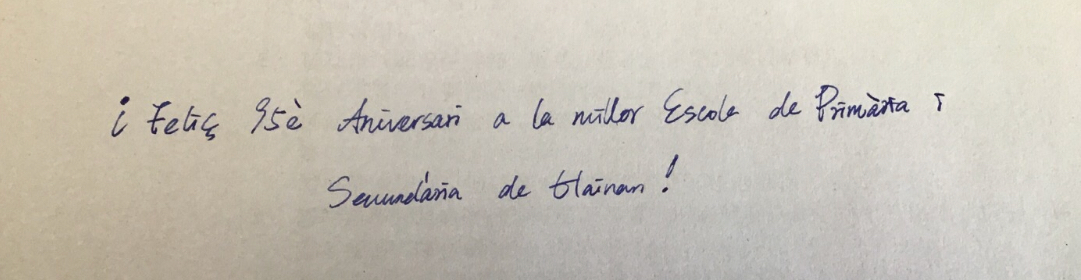 ¡ Feliç 95è Aniversari a la millor Escola de Primària i
Secundària de Hainan !